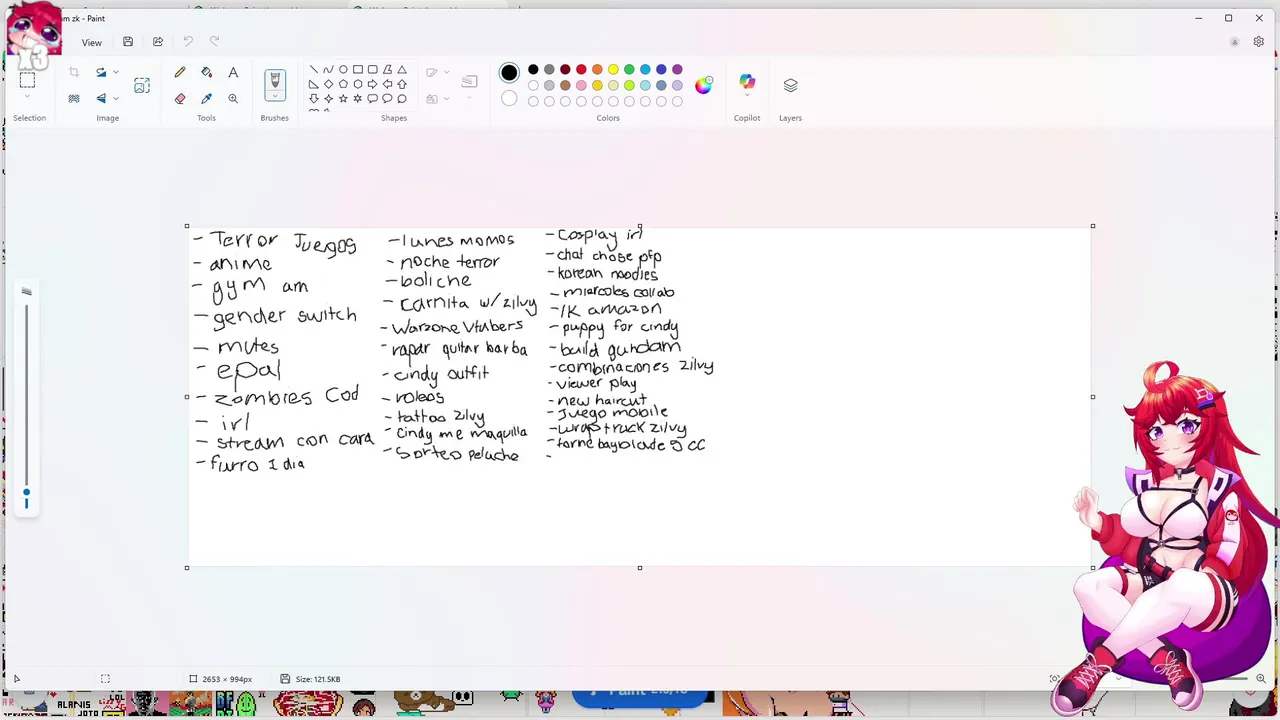 zk - Paint
View
X3
Selection
Image
Tools
Brushes
Shapes
Colors
Copilot
Layers
- Terror Juegos
- anime
- gym am
- gender switch
- mutes
- epal
- zombies Cod
- irl
- stream con cara
- furro 1 dia
- lunes momos
- noche terror
- boliche
- Carnita w/ zilvy
- Warzone Vtubers
- rapar quitar barba
- cindy outfit
- roleos
- tattoo zilvy
- Cindy me maquilla
- Sorteo peluche
- Cosplay irl
- chat chose pfp
- korean noodles
- miercoles collab
- 1K amazon
- puppy for cindy
- build gundam
- combinaciones zilvy
- viewer play
- new haircut
- Juego mobile
- wrap truck zilvy
-
2653 × 994px
Size: 121.5KB
ALANIS
LOL